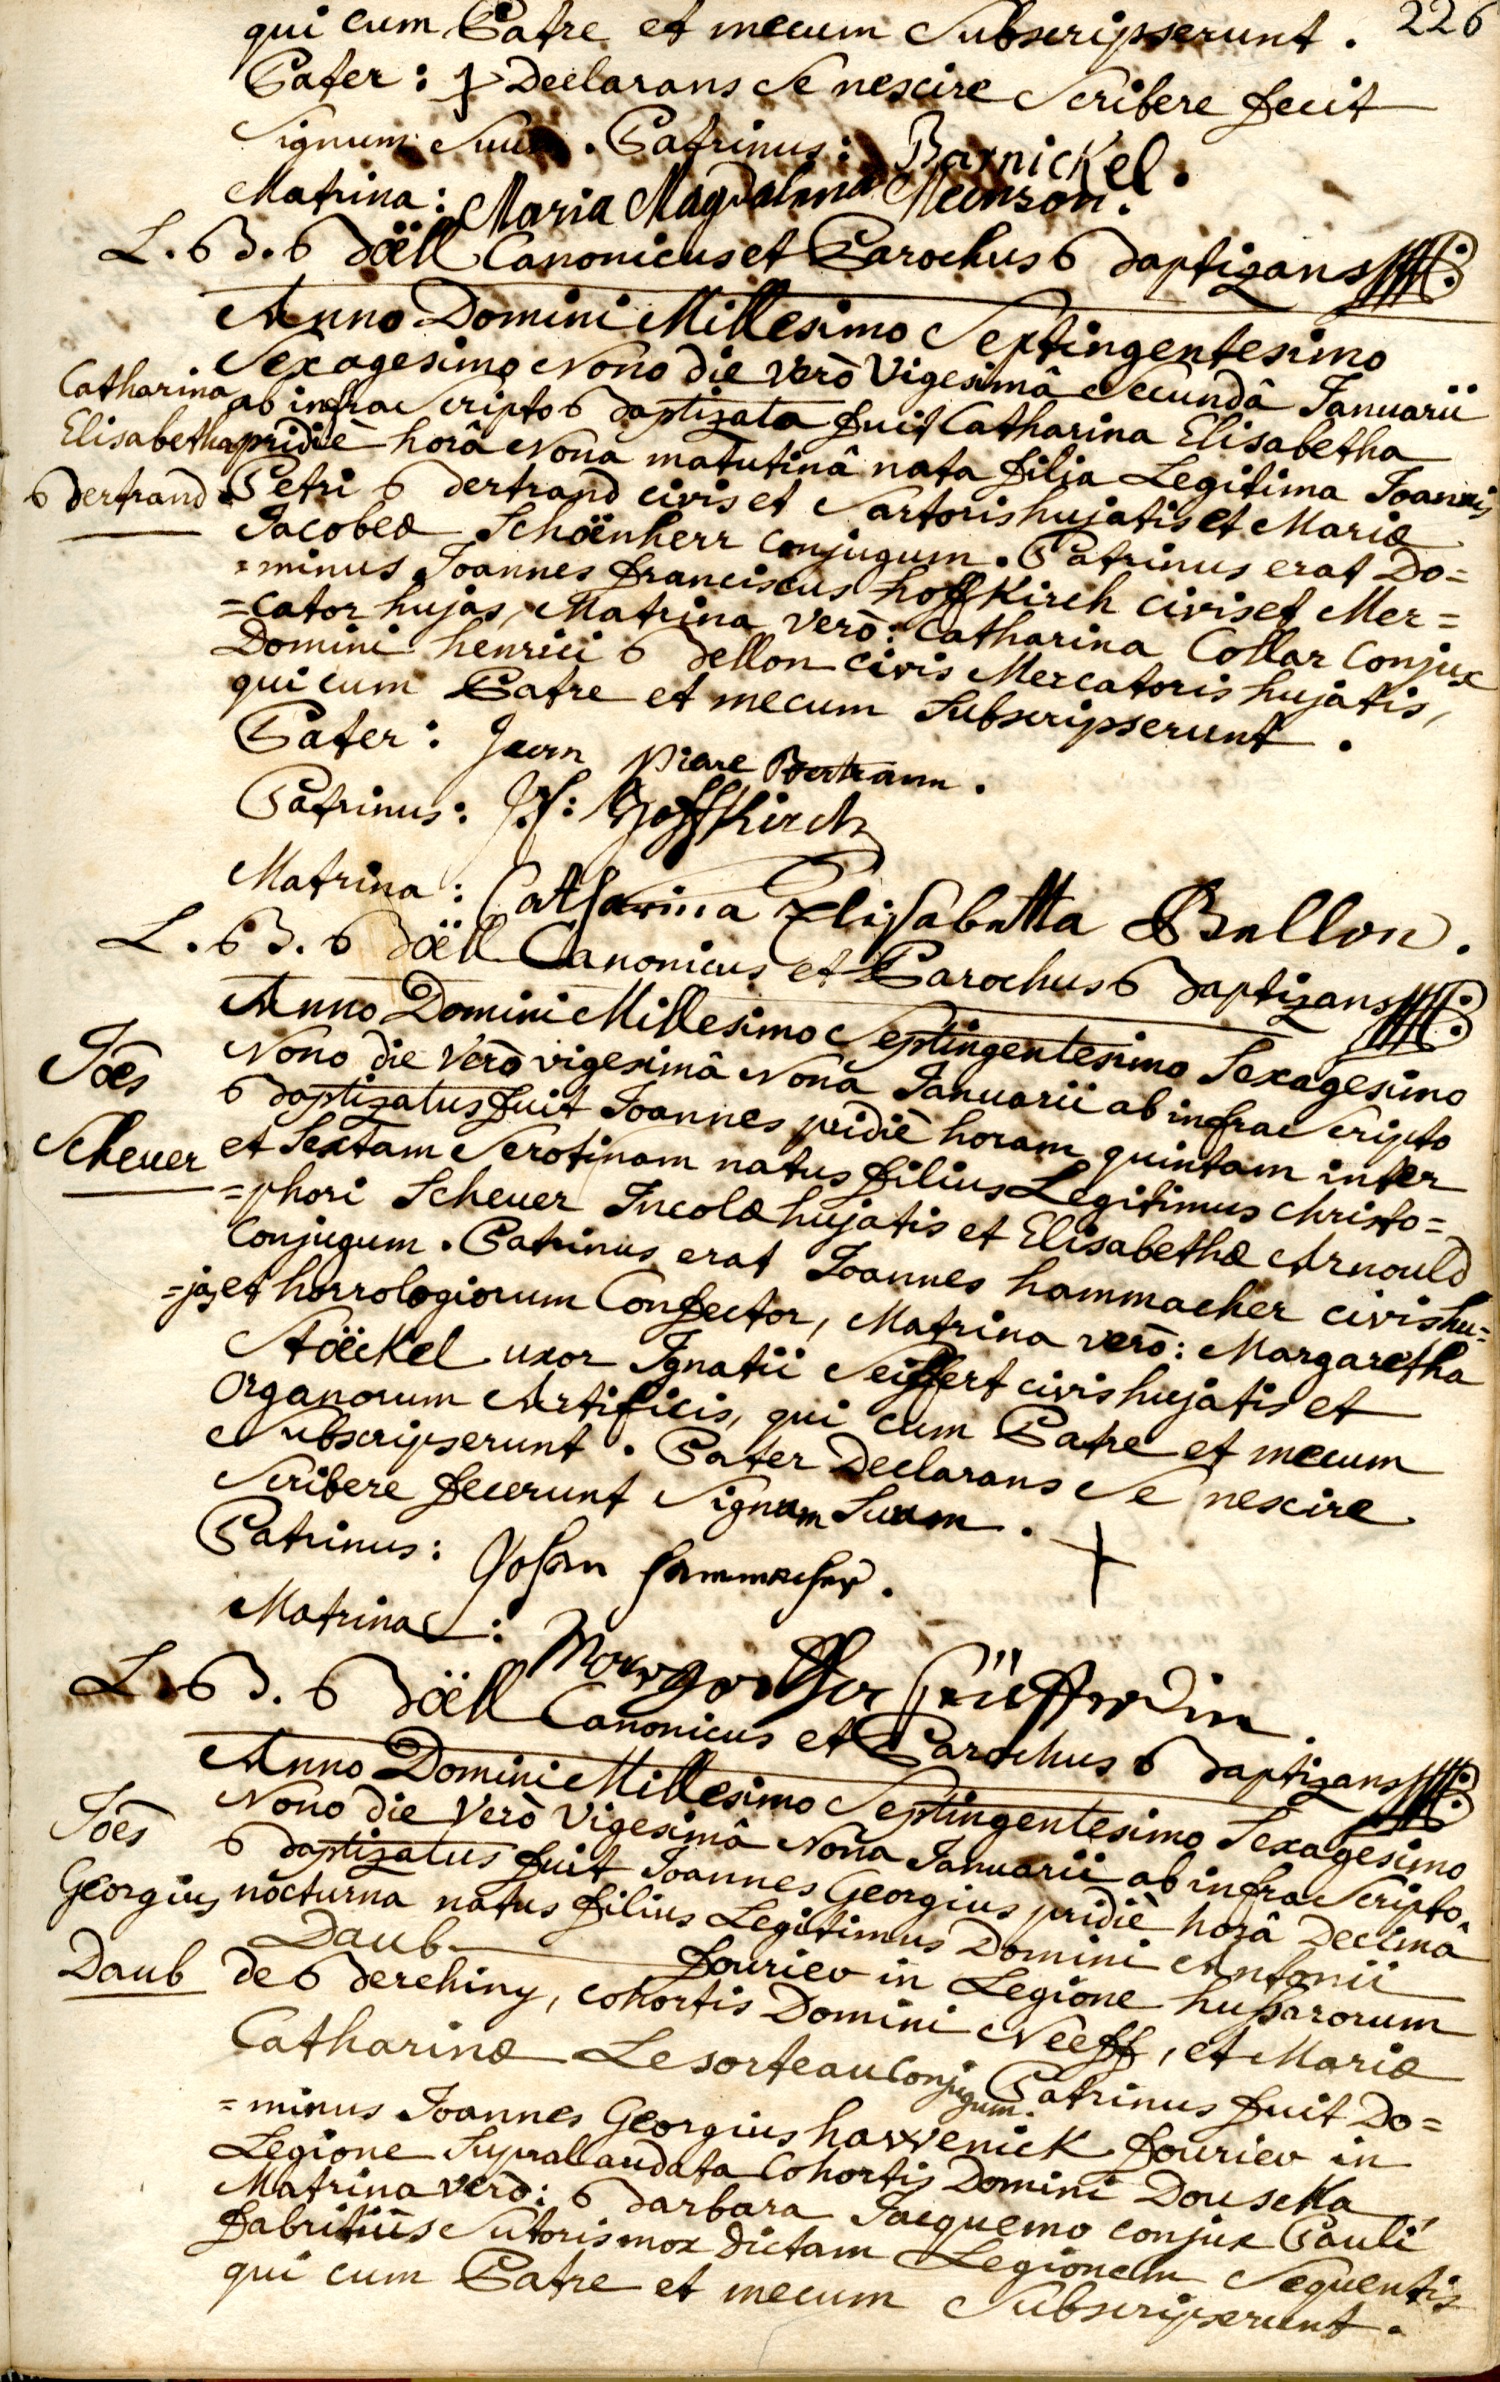 226
qui cum Patre et mecum Subscripserunt.
Pater: Declarans Se nescire Scribere fecit
Signum Suum. Patrinus: Barnickel.
Matrina: Maria Magdalena
L. B. Böell Canonicus et Parochus Baptizans
Anno Domini Millesimo Septingentesimo
Sexagesimo Nono die verò Vigesimâ Secundâ Januarii
Catharina ab infra Scripto Baptizata fuit Catharina Elisabetha
Elisabetha pridiè horâ Nona matutinâ nata filia Legitima Joannis
Bertrand Petri Bertrand civis et Sartoris hujatis et Mariæ
Jacobeæ Schöenherr conjugum. Patrinus erat Do=
=minus Joannes franciscus hoffkirch civis et Mer=
=cator hujas, Matrina verò: Catharina Collar Conjux
Domini henrici Bellon civis Mercatoris hujatis,
qui cum Patre et mecum Subscripserunt.
Pater: Jean Piere Bertrann.
Patrinus: J.f: Hoffkirch
Matrina: Catharina Elisabetta Bellon.
L. B. Böell Canonicus et Parochus Baptizans
Anno Domini Millesimo Septingentesimo Sexagesimo
Joes̄ Nono die Verò vigesimâ Nona Januarii ab infra Scripto
Baptizatus fuit Joannes pridiè horam quintam inter
Scheuer et Sextam Serotinam natus filius Legitimus Christo=
=phori Scheuer Incolæ hujatis et Elisabethæ Arnould
Conjugum. Patrinus erat Joannes hammacher civis hu=
=jas et horrologiorum Confector, Matrina verò: Margaretha
Stöeckel uxor Ignatii Seiffert civis hujatis et
Organorum Artificis, qui cum Patre et mecum
Subscripserunt. Pater Declarans Se nescire
Scribere fecerunt Signum Suum.
Patrinus: Johan Hammacher.
Matrina:
L. B. Böell Canonicus et Parochus Baptizans
Anno Domini Millesimo Septingentesimo Sexagesimo
Joes̄ Nono die Verò Vigesimâ Nona Januarii ab infra Scripto
Baptizatus fuit Joannes Georgius pridiè horâ Decimâ
Georgius nocturna natus filius Legitimus Domini Antonii
Daub fourier in Legione hussarorum
Daub de Berchiny, cohortis Domini Neeff, et Mariæ
Catharinæ Lesorteau Conjugum. Patrinus fuit Do=
=minus Joannes Georgius hawenick fourier in
Legione Supralaudata Cohortis Domini Douschka,
Matrina verò: Barbara Jacquemo conjux Pauli
fabritius Sutoris mox dictam Legionem Sequentis
qui cum Patre et mecum Subscripserunt.